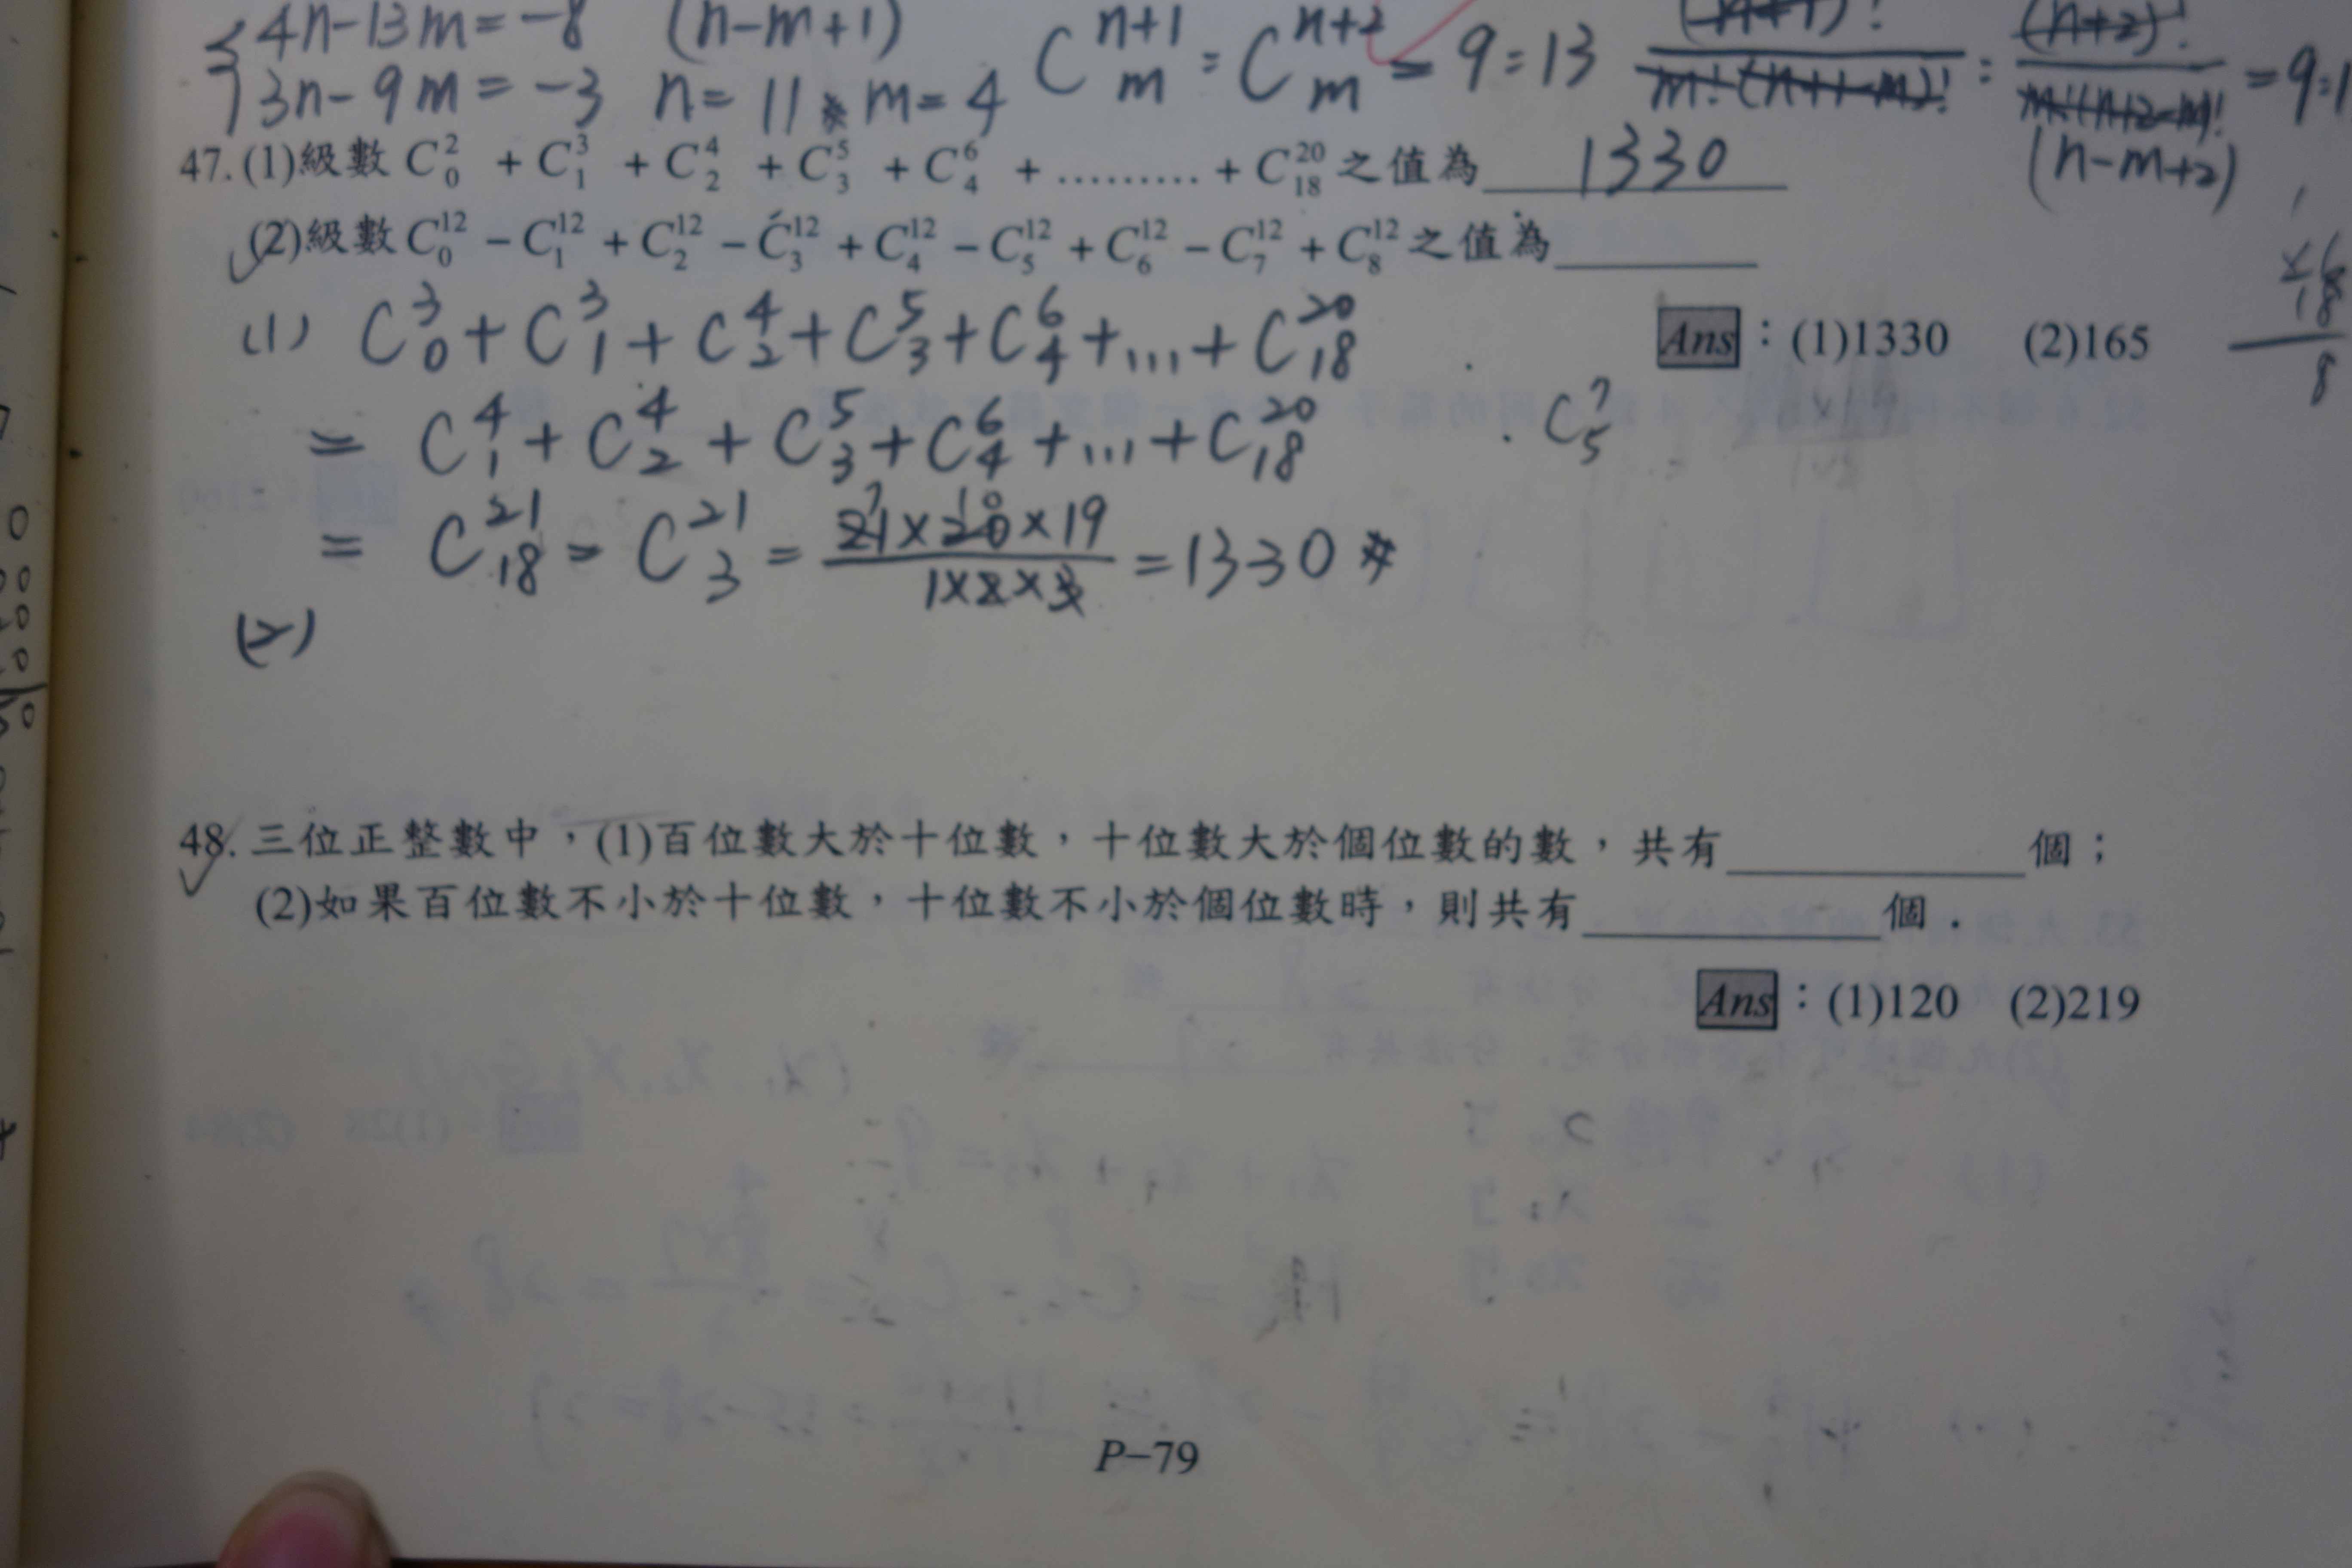 4n-13m=-8 (n-m+1)
3n-9m=-3 n=11 m=4 C^{n+1}_m : C^{n+2}_m = 9:13
(n-m+2)
47.(1)級數 C^2_0 + C^3_1 + C^4_2 + C^5_3 + C^6_4 + ……… + C^{20}_{18} 之值為 1330
(2)級數 C^{12}_0 − C^{12}_1 + C^{12}_2 − C^{12}_3 + C^{12}_4 − C^{12}_5 + C^{12}_6 − C^{12}_7 + C^{12}_8 之值為______
Ans：(1)1330 (2)165
(1) C^3_0 + C^3_1 + C^4_2 + C^5_3 + C^6_4 + ... + C^{20}_{18}
= C^4_1 + C^4_2 + C^5_3 + C^6_4 + ... + C^{20}_{18} C^7_5
= C^{21}_{18} = C^{21}_3 = \frac{21×20×19}{1×2×3} = 1330
(2)
48.三位正整數中，(1)百位數大於十位數，十位數大於個位數的數，共有______個；
(2)如果百位數不小於十位數，十位數不小於個位數時，則共有______個．
Ans：(1)120 (2)219
P−79